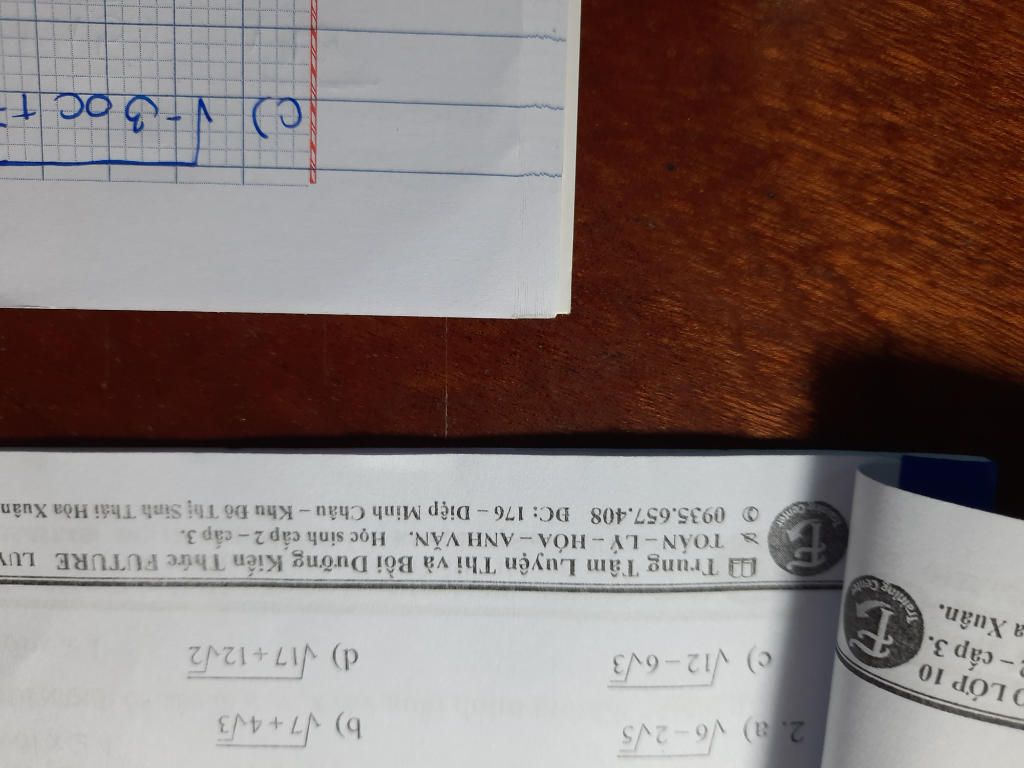 2. a) √6 − 2√5 b) √7 + 4√3
c) √12 − 6√3 d) √17 + 12√2
Trung Tâm Luyện Thi và Bồi Dưỡng Kiến Thức FUTURE
TOÁN – LÝ – HÓA – ANH VĂN. Học sinh cấp 2 – cấp 3.
0935.657.408 ĐC: 176 – Diệp Minh Châu – Khu Đô Thị Sinh Thái Hòa Xuân
LỚP 10
– cấp 3.
Xuân.
Training Center
c) √-3x +